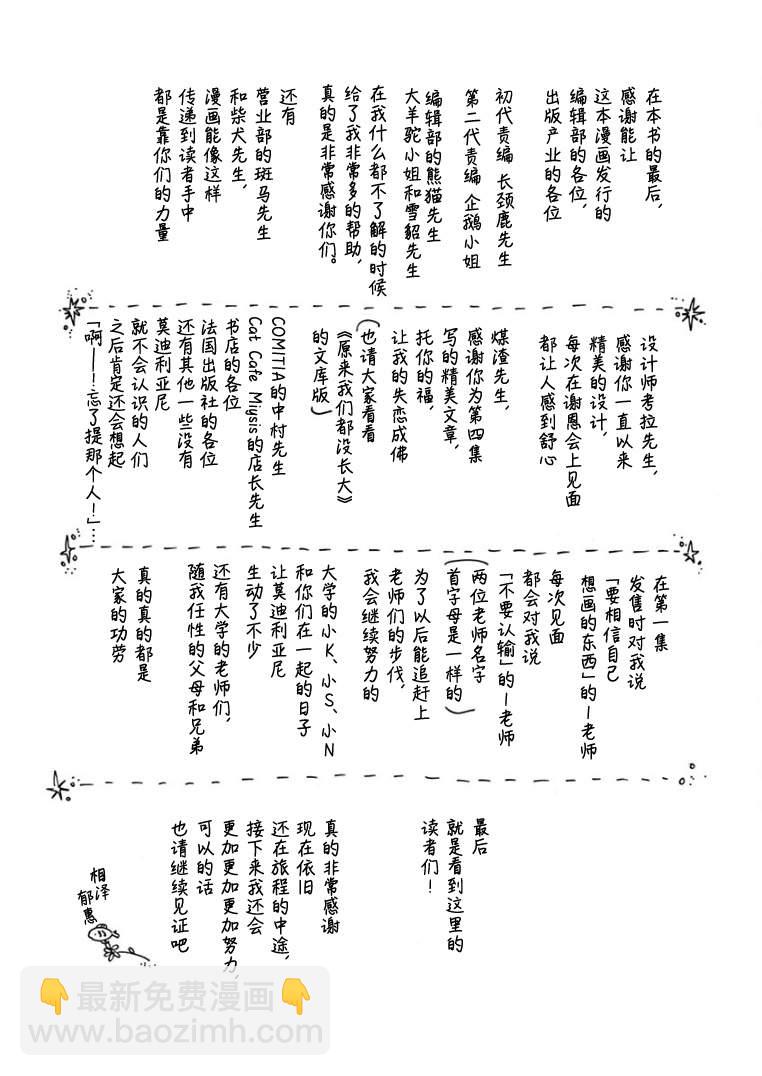 在本书的最后，
感谢能让
这本漫画发行的
编辑部的各位，
出版产业的各位
初代责编 长颈鹿先生
第二代责编 企鹅小姐
编辑部的熊猫先生
大羊驼小姐和雪貂先生
在我什么都不了解的时候
给了我非常多的帮助，
真的是非常感谢你们。
还有
营业部的斑马先生
和柴犬先生，
漫画能像这样
传递到读者手中
都是靠你们的力量
设计师考拉先生，
感谢你一直以来
精美的设计，
每次在谢恩会上见面
都让人感到舒心
煤渣先生，
感谢你为第四集
写的精美文章，
托你的福，
让我的失恋成佛
（也请大家看看
《原来我们都没长大》
的文库版）
COMITIA的中村先生
Cat Cafe Miysis的店长先生
书店的各位
法国出版社的各位
还有其他一些没有
莫迪利亚尼
就不会认识的人们
之后肯定还会想起
「啊——！忘了提那个人！」…
在第一集
发售时对我说
「要相信自己
想画的东西」的I老师
每次见面
都会对我说
「不要认输」的I老师
（两位老师名字
首字母是一样的）
为了以后能追赶上
老师们的步伐，
我会继续努力的
大学的小K、小S、小N
和你们在一起的日子
让莫迪利亚尼
生动了不少
还有大学的老师们，
随我任性的父母和兄弟
真的真的都是
大家的功劳
最后
就是看到这里的
读者们！
真的非常感谢
现在依旧
还在旅程的中途，
接下来我还会
更加更加更加努力，
可以的话
也请继续见证吧
相泽
郁惠
👇最新免费漫画👇
www.baozimh.com